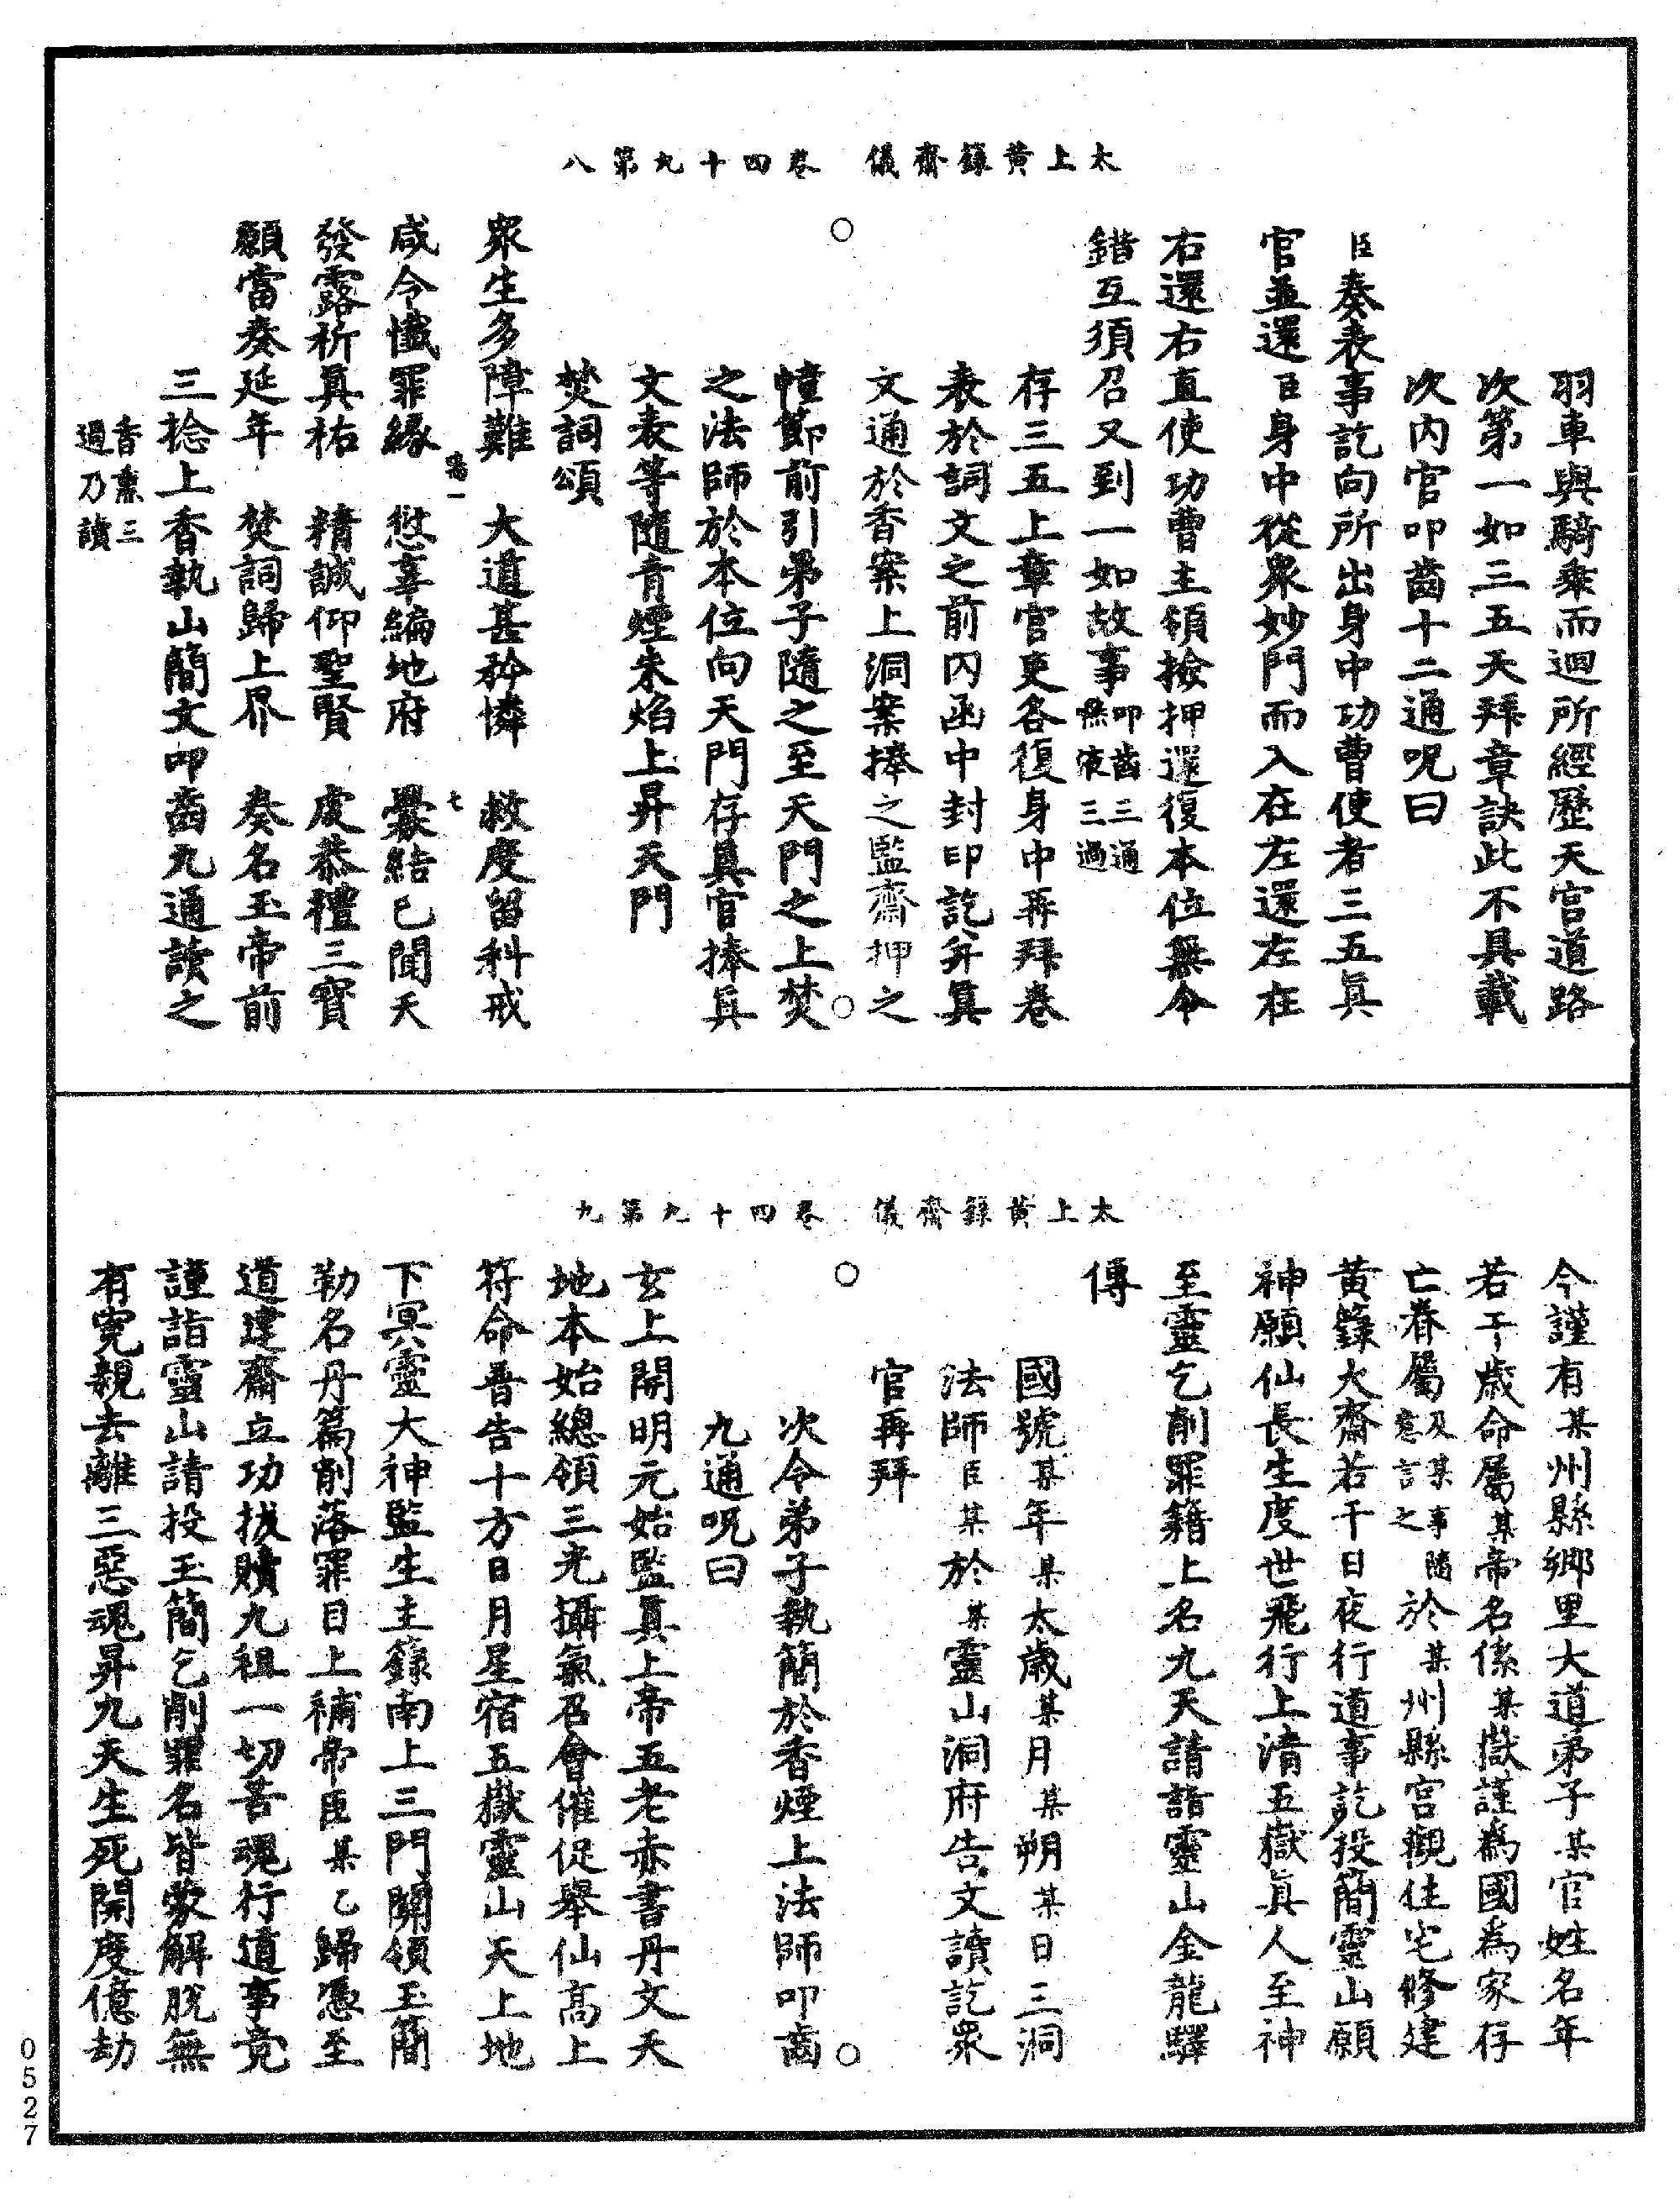 太上黃籙齋儀　卷四十九第八
羽車輿騎乘而迴所經歷天官道路
次第一如三五天拜章訣此不具載
次內官叩齒十二通呪曰
臣奏表事訖向所出身中功曹使者三五眞
官並還臣身中從衆妙門而入在左還左在
右還右直使功曹主領撿押還復本位無令
錯互須召又到一如故事叩齒三通嚥液三過
存三五上章官吏各復身中再拜卷
表於詞文之前內函中封印訖并眞
文通於香案上洞案捧之監齋押之
幢節前引弟子隨之至天門之上焚
之法師於本位向天門存眞官捧眞
文表等隨青煙朱焰上昇天門
焚詞頌
衆生多障難　大道甚矜憐　救度留科戒
咸令懺罪緣　愆辜編地府　釁結已聞天
發露祈眞祐　精誠仰聖賢　虔恭禮三寶
願當奏延年　焚詞歸上界　奏名玉帝前
三捻上香執山簡文叩齒九通讀之
香熏三過乃讀
太上黃籙齋儀　卷四十九第九
今謹有某州縣鄉里大道弟子某官姓名年
若干歲命屬某帝名係某嶽謹爲國爲家存
亡眷屬及某事隨意言之於某州縣宮觀住宅修建
黃籙大齋若干日夜行道事訖投簡靈山願
神願仙長生度世飛行上清五嶽眞人至神
至靈乞削罪籍上名九天請詣靈山金龍驛
傳
國號某年某太歲某月某朔某日三洞
法師臣某於某靈山洞府告文讀訖衆
官再拜
次令弟子執簡於香煙上法師叩齒
九通呪曰
玄上開明元始監眞上帝五老赤書丹文天
地本始總領三光攝氣召會催促舉仙高上
符命普告十方日月星宿五嶽靈山天上地
下冥靈大神監生主籙南上三門開領玉簡
勒名丹篇削落罪目上補帝臣某乙歸憑至
道建齋立功拔贖九祖一切苦魂行道事竟
謹詣靈山請投玉簡乞削罪名皆蒙解脫無
有寃親去離三惡魂昇九天生死開度億劫
0527